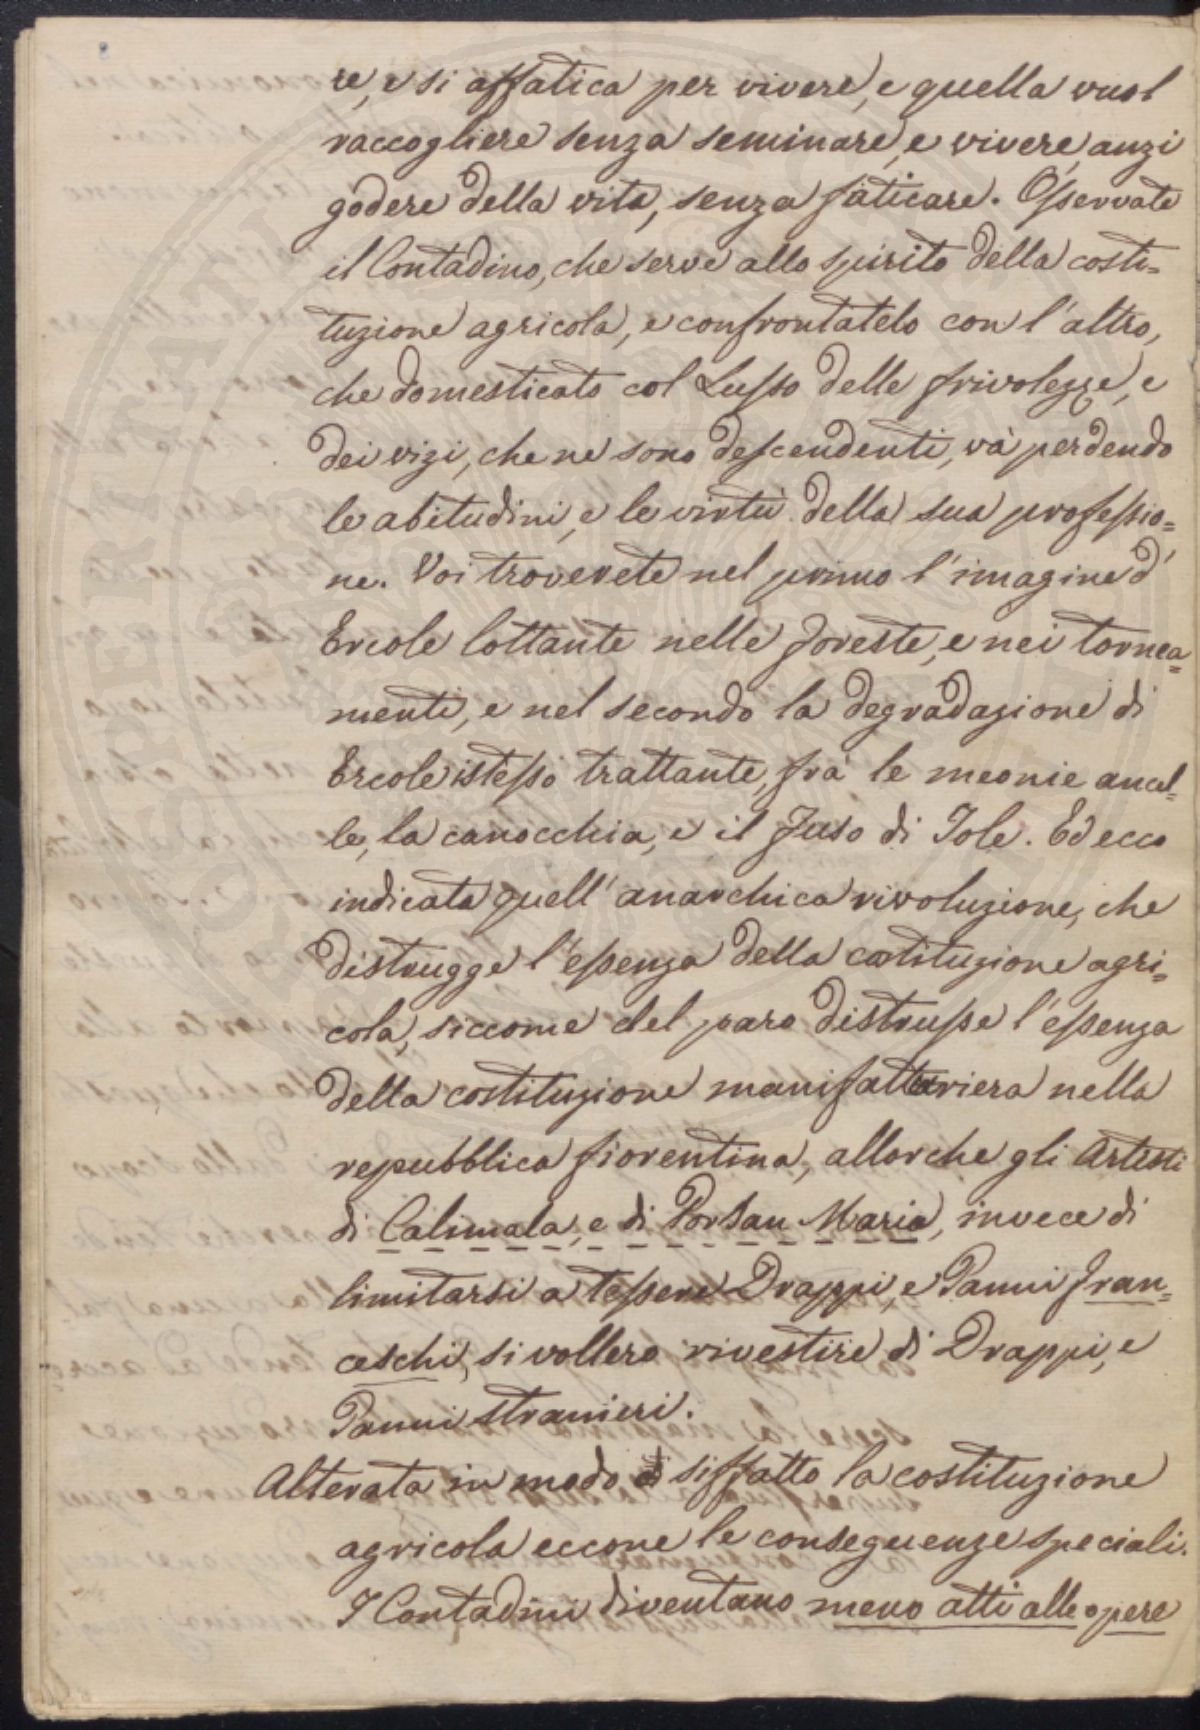 re, e si affatica per vivere, e quella vuol
raccogliere senza seminare, e vivere, anzi
godere della vita, senza faticare. Osservate
il Contadino, che serve allo spirito della costi=
tuzione agricola, e confrontatelo con l'altro,
che domesticato col Lusso delle frivolezze, e
dei vizi, che ne sono descendenti, và perdendo
le abitudini, e le virtù della sua professio=
ne. Voi troverete nel primo l'imagine d'
Ercole lottante nelle foreste, e nei tornea=
menti, e nel secondo la degradazione di
Ercole istesso trattante, frà le meonie ancel=
le, la canocchia, e il fuso di Iole. Ed ecco
indicata quell'anarchica rivoluzione, che
distrugge l'essenza della costituzione agri=
cola, siccome del paro distrusse l'essenza
della costituzione manifatturiera nella
repubblica fiorentina, allorche gli Artisti
di Calimala, e di Por San Maria, invece di
limitarsi a tessere Drappi, e Panni fran=
ceschi, si vollero rivestire di Drappi, e
Panni stranieri.
Alterata in modo siffatto la costituzione
agricola eccone le conseguenze speciali.
I Contadini diventano meno atti alle opere
PROSPERITATI